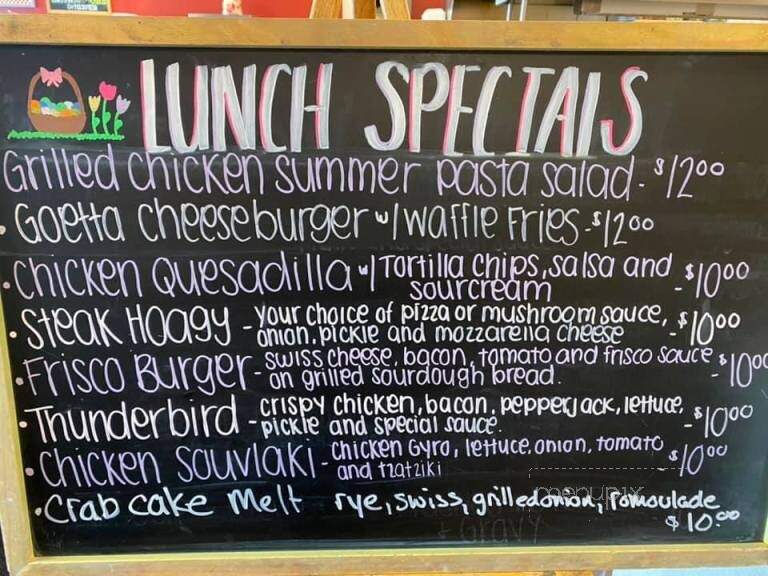 LUNCH SPECIALS
Grilled chicken summer pasta salad - $12.00
• Goetta cheeseburger w/ waffle Fries - $12.00
• Chicken Quesadilla w/ Tortilla chips, salsa and
sourcream - $10.00
• Steak Hoagy - your choice of pizza or mushroom sauce,
onion, pickle and mozzarella cheese - $10.00
• Frisco Burger - swiss cheese, bacon, tomato and frisco sauce
on grilled sourdough bread. - $10.00
• Thunderbird - crispy chicken, bacon, pepperjack, lettuce,
pickle and special sauce. - $10.00
• Chicken Souvlaki - chicken Gyro, lettuce, onion, tomato
and tzatziki - $10.00
• Crab cake Melt rye, swiss, grilled onion, romoulade
$10.00
menupix
+ Gravy